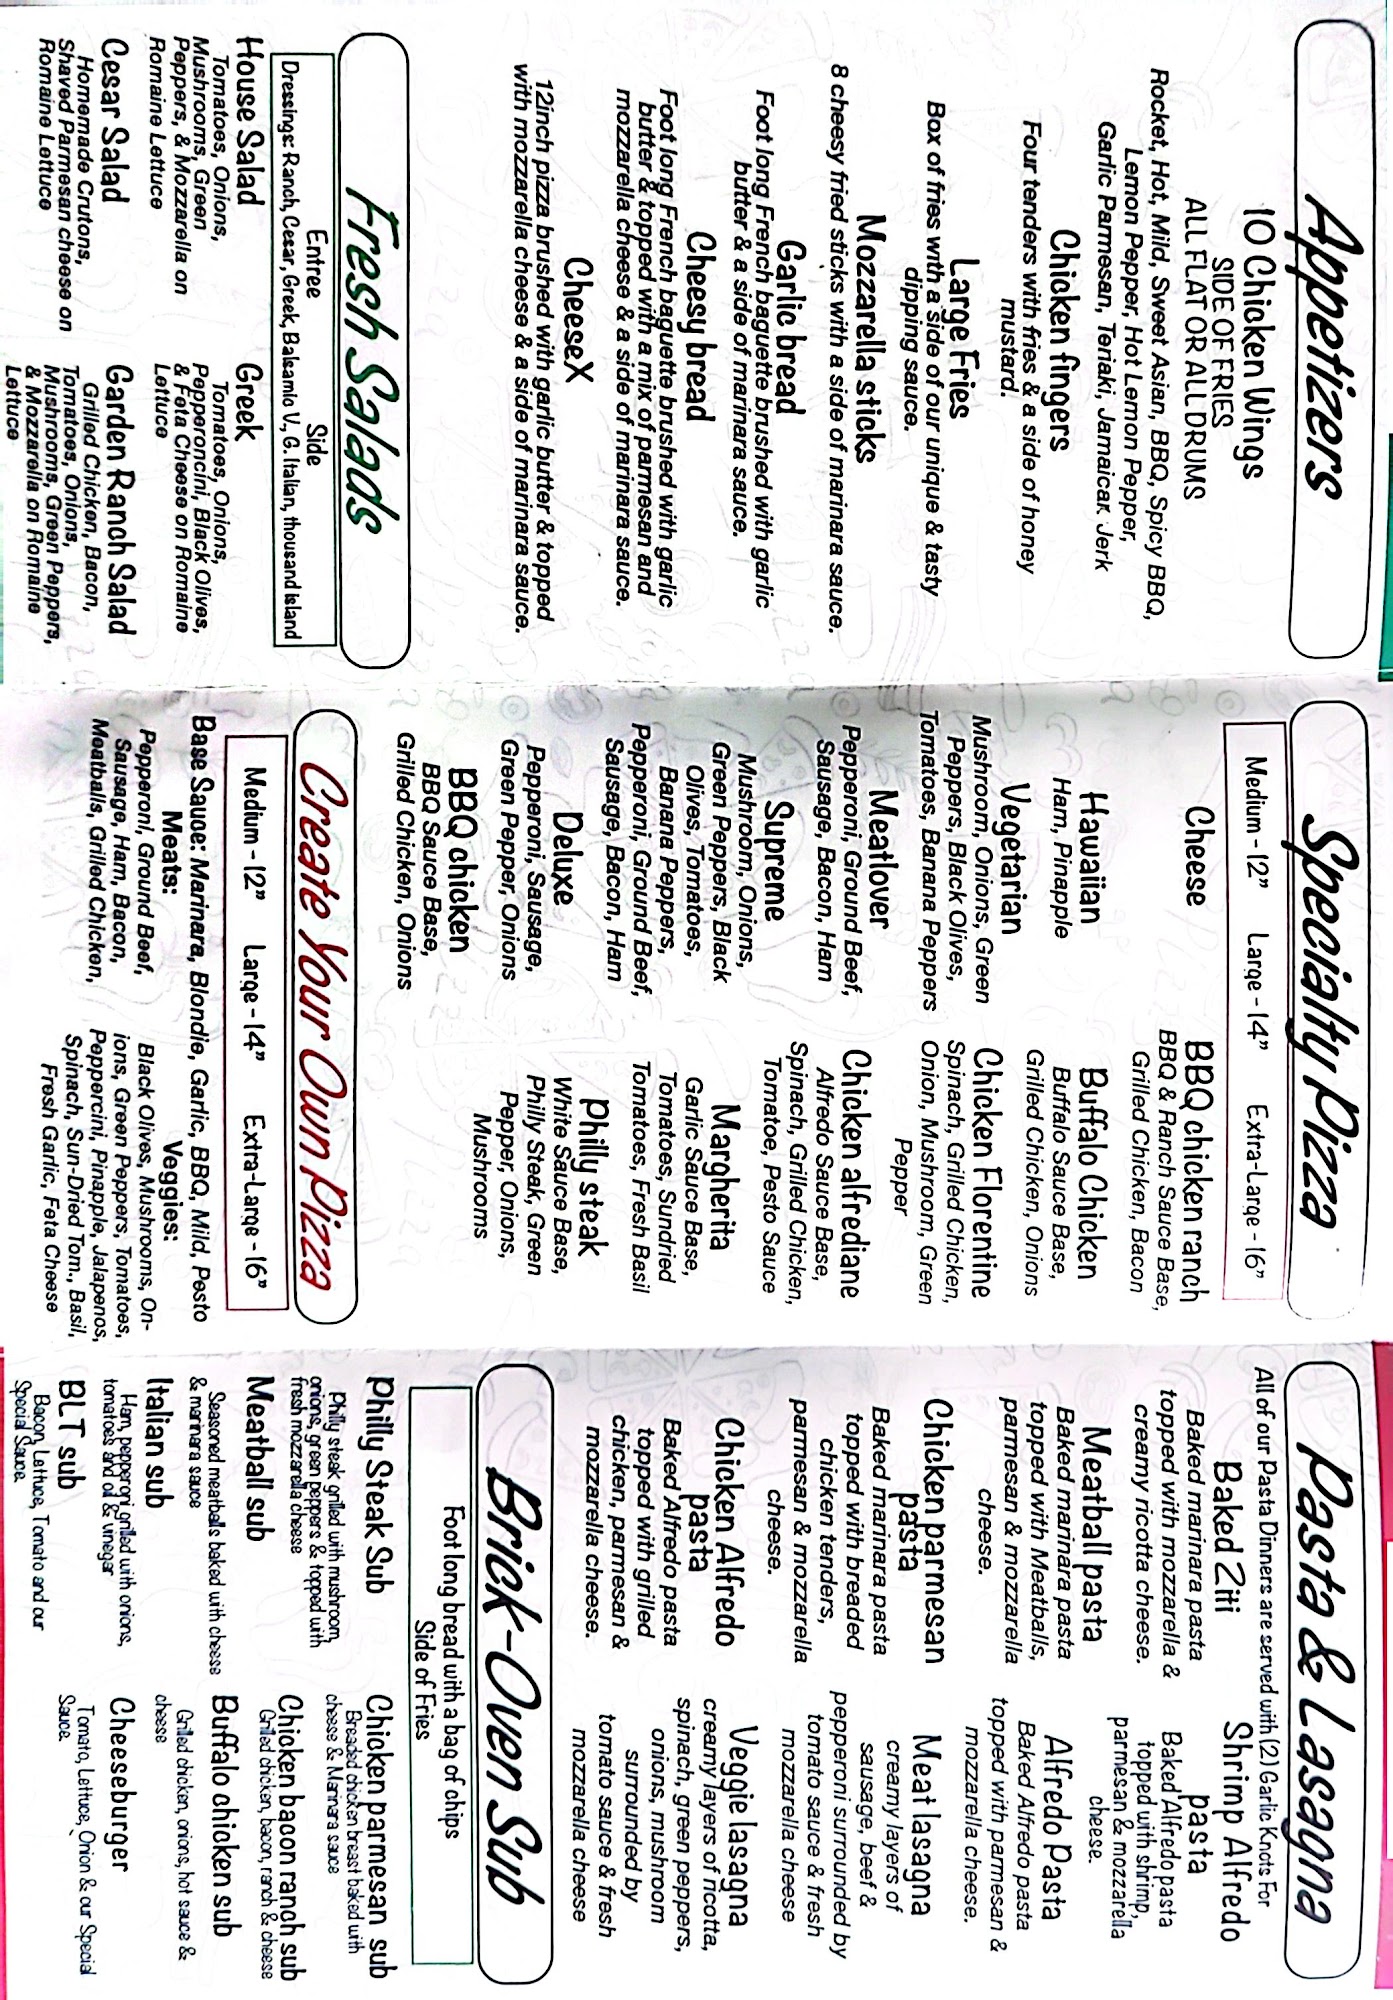 Appetizers
10 Chicken Wings
SIDE OF FRIES
ALL FLAT OR ALL DRUMS
Rocket, Hot, Mild, Sweet Asian, BBQ, Spicy BBQ,
Lemon Pepper, Hot Lemon Pepper,
Garlic Parmesan, Teriaki, Jamaican Jerk
Chicken fingers
Four tenders with fries & a side of honey
mustard.
Large Fries
Box of fries with a side of our unique & tasty
dipping sauce.
Mozzarella sticks
8 cheesy fried sticks with a side of marinara sauce.
Garlic bread
Foot long French baguette brushed with garlic
butter & a side of marinara sauce.
Cheesy bread
Foot long French baguette brushed with garlic
butter & topped with a mix of parmesan and
mozzarella cheese & a side of marinara sauce.
CheeseX
12inch pizza brushed with garlic butter & topped
with mozzarella cheese & a side of marinara sauce.
Fresh Salads
Entree Side
Dressings: Ranch, Cesar, Greek, Balsamio V., G. Italian, thousand Island
House Salad
Tomatoes, Onions,
Mushrooms, Green
Peppers, & Mozzarella on
Romaine Lettuce
Greek
Tomatoes, Onions,
Pepperoncini, Black Olives,
& Feta Cheese on Romaine
Lettuce
Cesar Salad
Homemade Crutons,
Shaved Parmesan cheese on
Romaine Lettuce
Garden Ranch Salad
Grilled Chicken, Bacon,
Tomatoes, Onions,
Mushrooms, Green Peppers,
& Mozzarella on Romaine
Lettuce
Specialty Pizza
Medium - 12" Large - 14" Extra-Large - 16"
Cheese
Hawaiian
Ham, Pinapple
Vegetarian
Mushroom, Onions, Green
Peppers, Black Olives,
Tomatoes, Banana Peppers
Meatlover
Pepperoni, Ground Beef,
Sausage, Bacon, Ham
Supreme
Mushroom, Onions,
Green Peppers, Black
Olives, Tomatoes,
Banana Peppers,
Pepperoni, Ground Beef,
Sausage, Bacon, Ham
Deluxe
Pepperoni, Sausage,
Green Pepper, Onions
BBQ chicken
BBQ Sauce Base,
Grilled Chicken, Onions
BBQ chicken ranch
BBQ & Ranch Sauce Base,
Grilled Chicken, Bacon
Buffalo Chicken
Buffalo Sauce Base,
Grilled Chicken, Onions
Chicken Florentine
Spinach, Grilled Chicken,
Onion, Mushroom, Green
Pepper
Chicken alfrediane
Alfredo Sauce Base,
Spinach, Grilled Chicken,
Tomatoe, Pesto Sauce
Margherita
Garlic Sauce Base,
Tomatoes, Sundried
Tomatoes, Fresh Basil
Philly steak
White Sauce Base,
Philly Steak, Green
Pepper, Onions,
Mushrooms
Create Your Own Pizza
Medium - 12" Large - 14" Extra-Large - 16"
Base Sauce: Marinara, Blondie, Garlic, BBQ, Mild, Pesto
Meats:
Pepperoni, Ground Beef,
Sausage, Ham, Bacon,
Meatballs, Grilled Chicken,
Veggies:
Black Olives, Mushrooms, On-
ions, Green Peppers, Tomatoes,
Peppercini, Pinapple, Jalapenos,
Spinach, Sun-Dried Tom., Basil,
Fresh Garlic, Feta Cheese
Pasta & Lasagna
All of our Pasta Dinners are served with (2) Garlic Knots For
Baked Ziti
Baked marinara pasta
topped with mozzarella &
creamy ricotta cheese.
Meatball pasta
Baked marinara pasta
topped with Meatballs,
parmesan & mozzarella
cheese.
Chicken parmesan
pasta
Baked marinara pasta
topped with breaded
chicken tenders,
parmesan & mozzarella
cheese.
Chicken Alfredo
pasta
Baked Alfredo pasta
topped with grilled
chicken, parmesan &
mozzarella cheese.
Shrimp Alfredo
pasta
Baked Alfredo pasta
topped with shrimp,
parmesan & mozzarella
cheese.
Alfredo Pasta
Baked Alfredo pasta
topped with parmesan &
mozzarella cheese.
Meat lasagna
creamy layers of
sausage, beef &
pepperoni surrounded by
tomato sauce & fresh
mozzarella cheese
Veggie lasagna
creamy layers of ricotta,
spinach, green peppers,
onions, mushroom
surrounded by
tomato sauce & fresh
mozzarella cheese
Brick-Oven Sub
Foot long bread with a bag of chips
Side of Fries
Philly Steak Sub
Philly steak grilled with mushroom,
onions, green peppers & topped with
fresh mozzarella cheese
Meatball sub
Seasoned meatballs baked with cheese
& marinara sauce
Italian sub
Ham, pepperoni grilled with onions,
tomatoes and oil & vinegar
BLT sub
Bacon, Lettuce, Tomato and our
Special Sauce.
Chicken parmesan sub
Breaded chicken breast baked with
cheese & Marinara sauce
Chicken bacon ranch sub
Grilled chicken, bacon, ranch & cheese
Buffalo chicken sub
Grilled chicken, onions, hot sauce &
cheese
Cheeseburger
Tomato, Lettuce, Onion & our Special
Sauce.